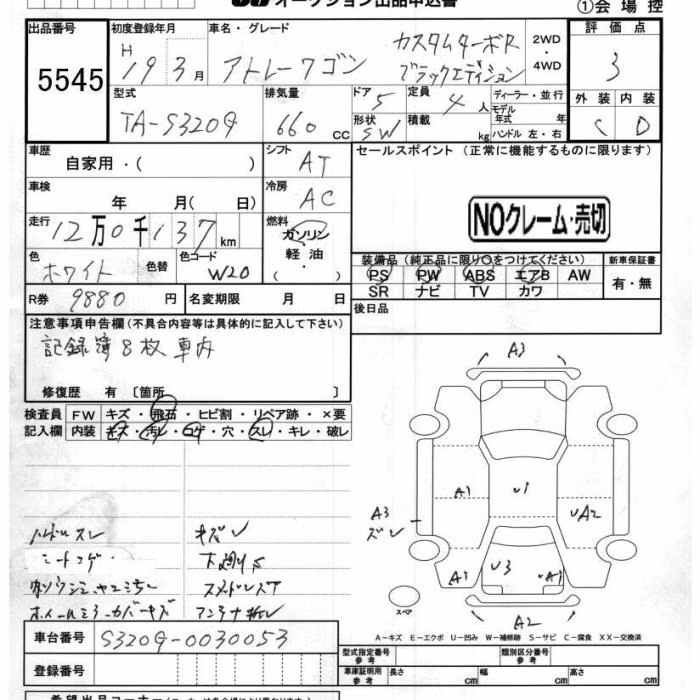 オークション出品申込書
①会場控
出品番号 初度登録年月 車名・グレード 評価点
5545 H 19 3月 アトレーワゴン カスタムターボR ブラックエディション 2WD・4WD 3
型式 排気量 ドア 5 定員 4人 ディーラー・並行 外装 内装
TA-S320G 660 CC 形状 SW 積載 kg モデル年式 年 ハンドル 左・右 C D
車歴 自家用・( ) シフト AT セールスポイント (正常に機能するものに限ります)
車検 年 月( 日) 冷房 AC
NOクレーム・売切
走行 12万0千137km 燃料 ガソリン 軽油・( )
色 ホワイト 色替 色コード W20
装備品 (純正品に限り○をつけてください) 新車保証書
PS PW ABS エアB AW 有・無
SR ナビ TV カワ
R券 9880円 名変期限 月 日
後日品
注意事項申告欄(不具合内容等は具体的に記入して下さい)
記録簿8枚 車内
修復歴 有 〔箇所 〕
検査員 FW キズ・飛石・ヒビ割・リペア跡・×要
記入欄 内装 キズ・汚レ・コゲ・穴・スレ・キレ・破レ
A3
A1 U1 UA2
A3
ズレ
A1 U3 UA1
A2
スペア
ハンドルスレ
シートコゲ
キズ
A-キズ E-エクボ U-凹み W-補修跡 S-サビ C-腐食 XX-交換済
車台番号 S320G-0030053
登録番号
型式指定番号 参考 類別区分番号 参考
車庫証明用 参考 長さ cm 幅 cm 高さ cm
希望出品コーナー